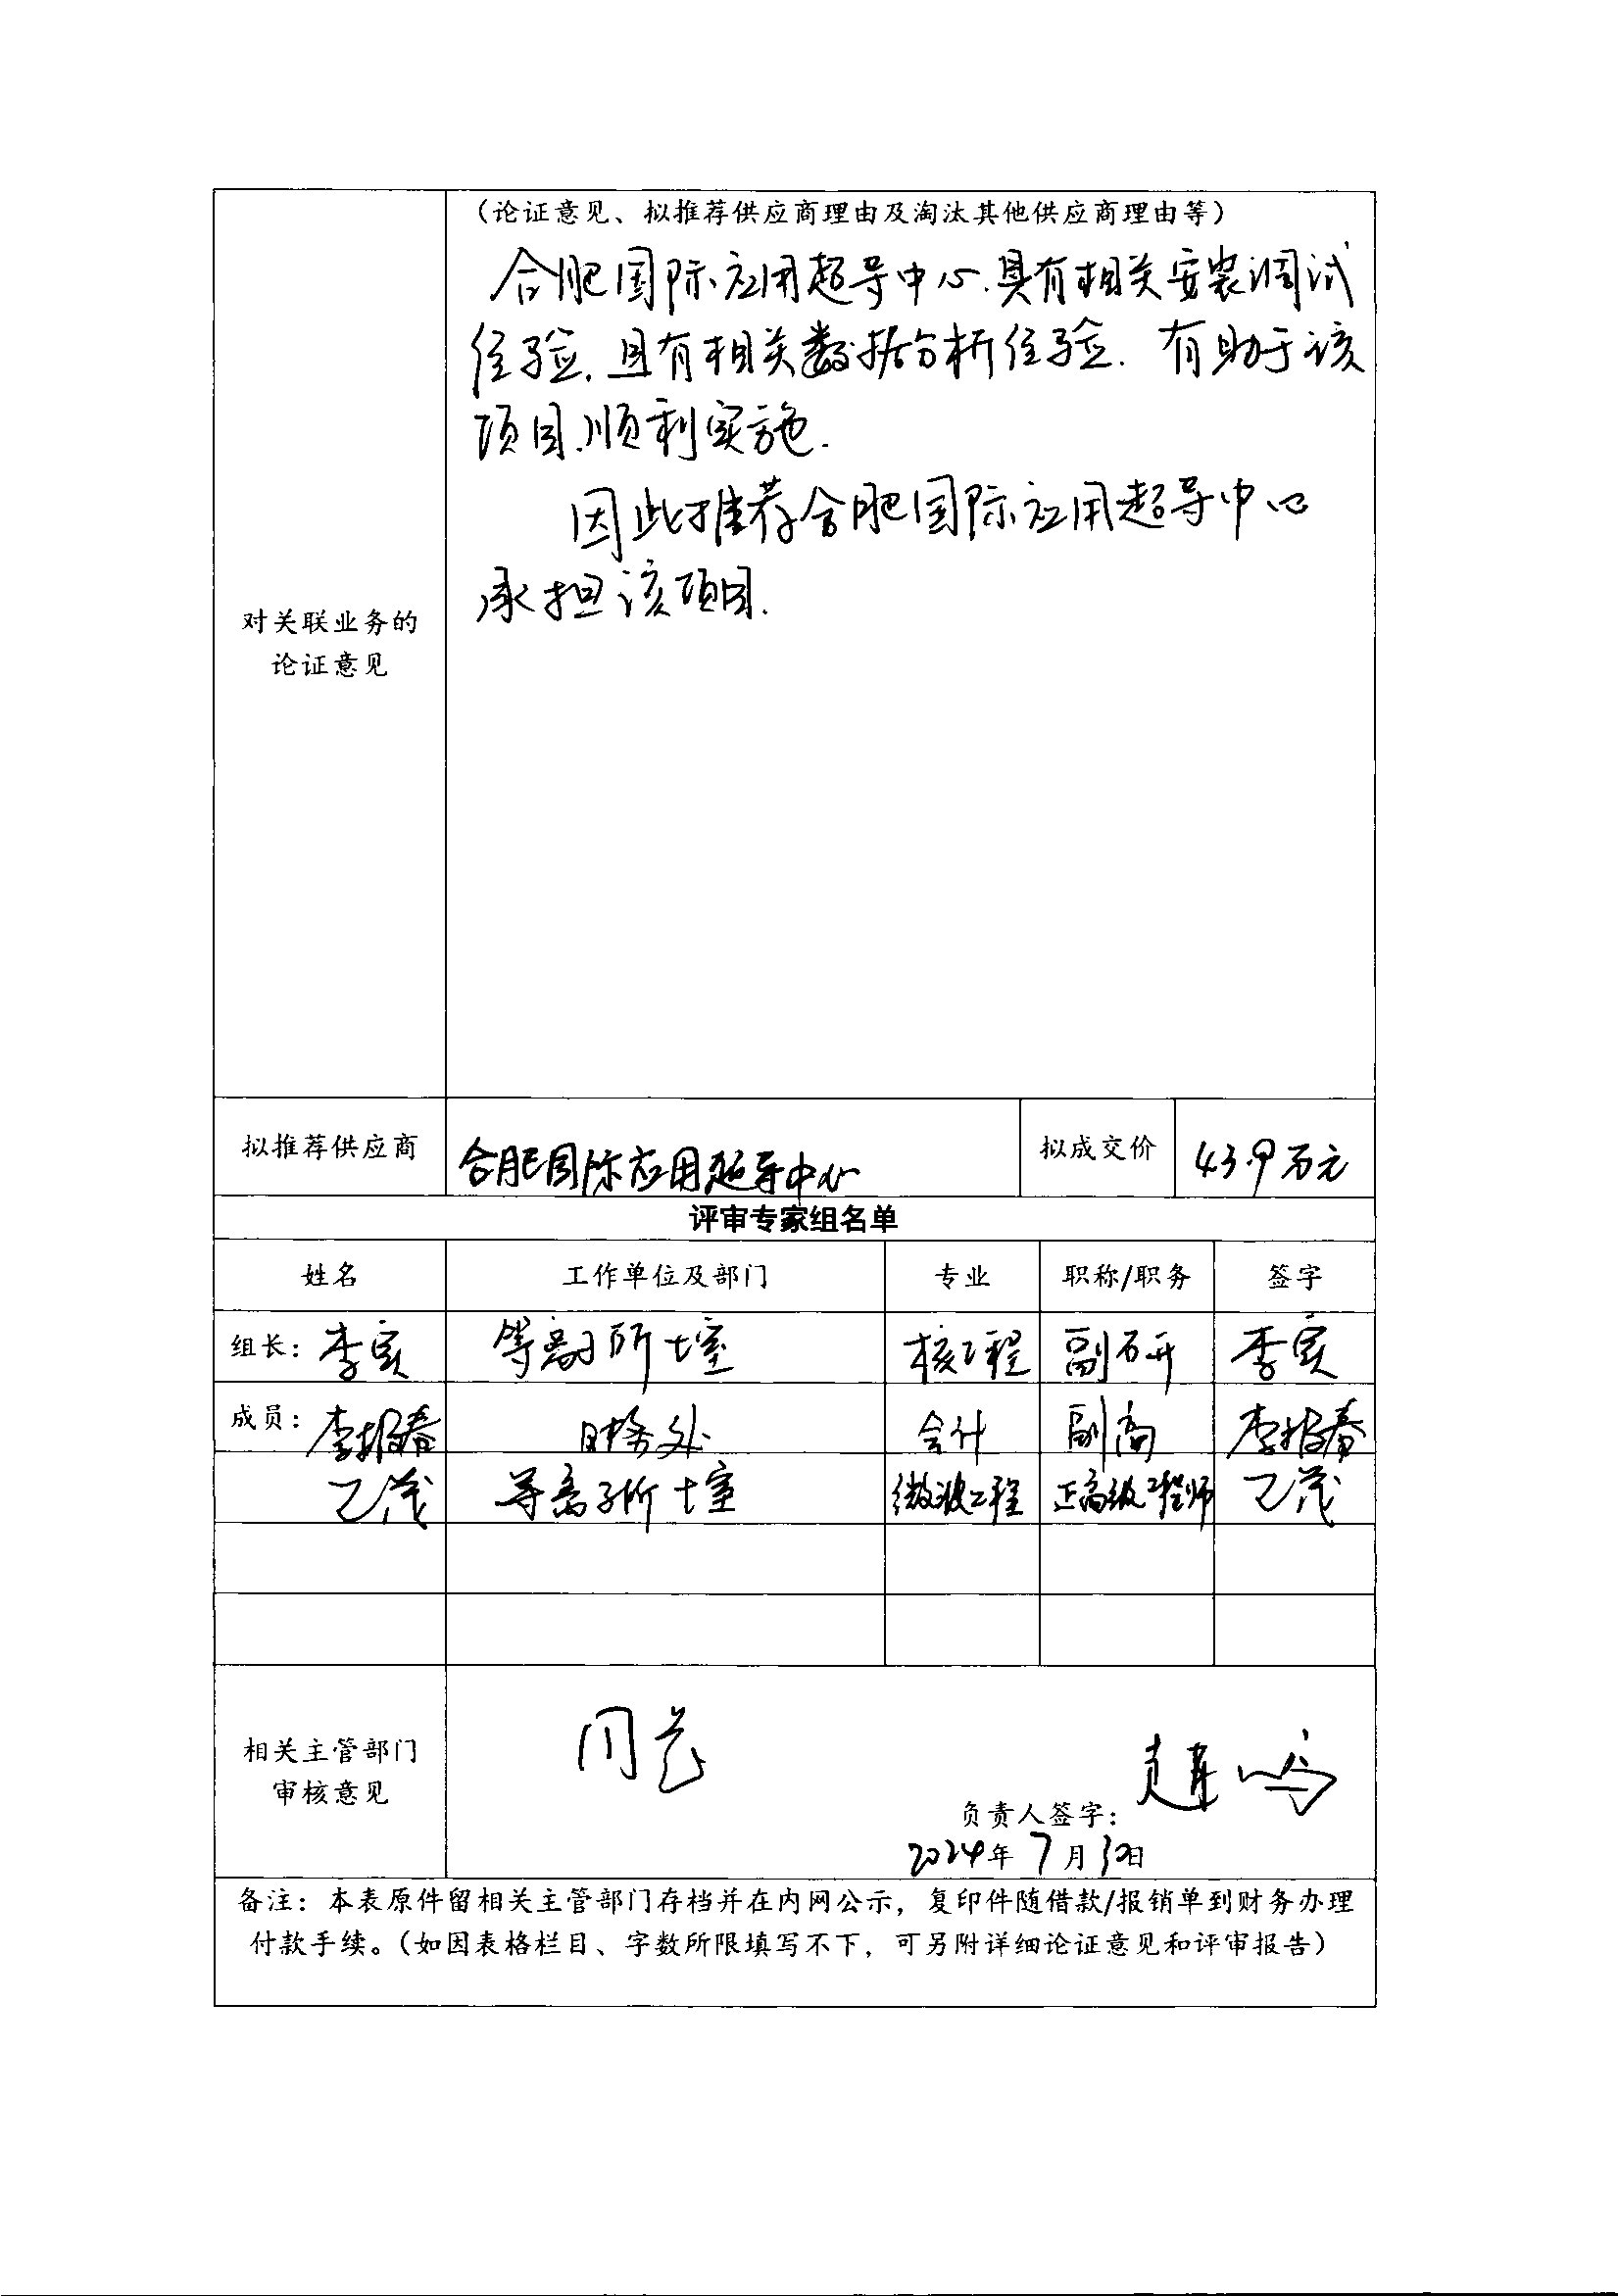 （论证意见、拟推荐供应商理由及淘汰其他供应商理由等）
合肥国际应用超导中心.具有相关安装调试
经验.且有相关数据分析经验.有助于该
项目.顺利实施.
因此推荐合肥国际应用超导中心
承担该项目.
对关联业务的
论证意见
拟推荐供应商 合肥国际应用超导中心 拟成交价 43.9万元
评审专家组名单
姓名 工作单位及部门 专业 职称/职务 签字
组长：李实 等离子所十室 核工程 副研 李实
成员：李报春 财务处 会计 副高 李报春
等离子所十室 微波工程 正高级工程师
同意
相关主管部门
审核意见
负责人签字：
2024年7月30日
备注：本表原件留相关主管部门存档并在内网公示，复印件随借款/报销单到财务办理
付款手续。（如因表格栏目、字数所限填写不下，可另附详细论证意见和评审报告）